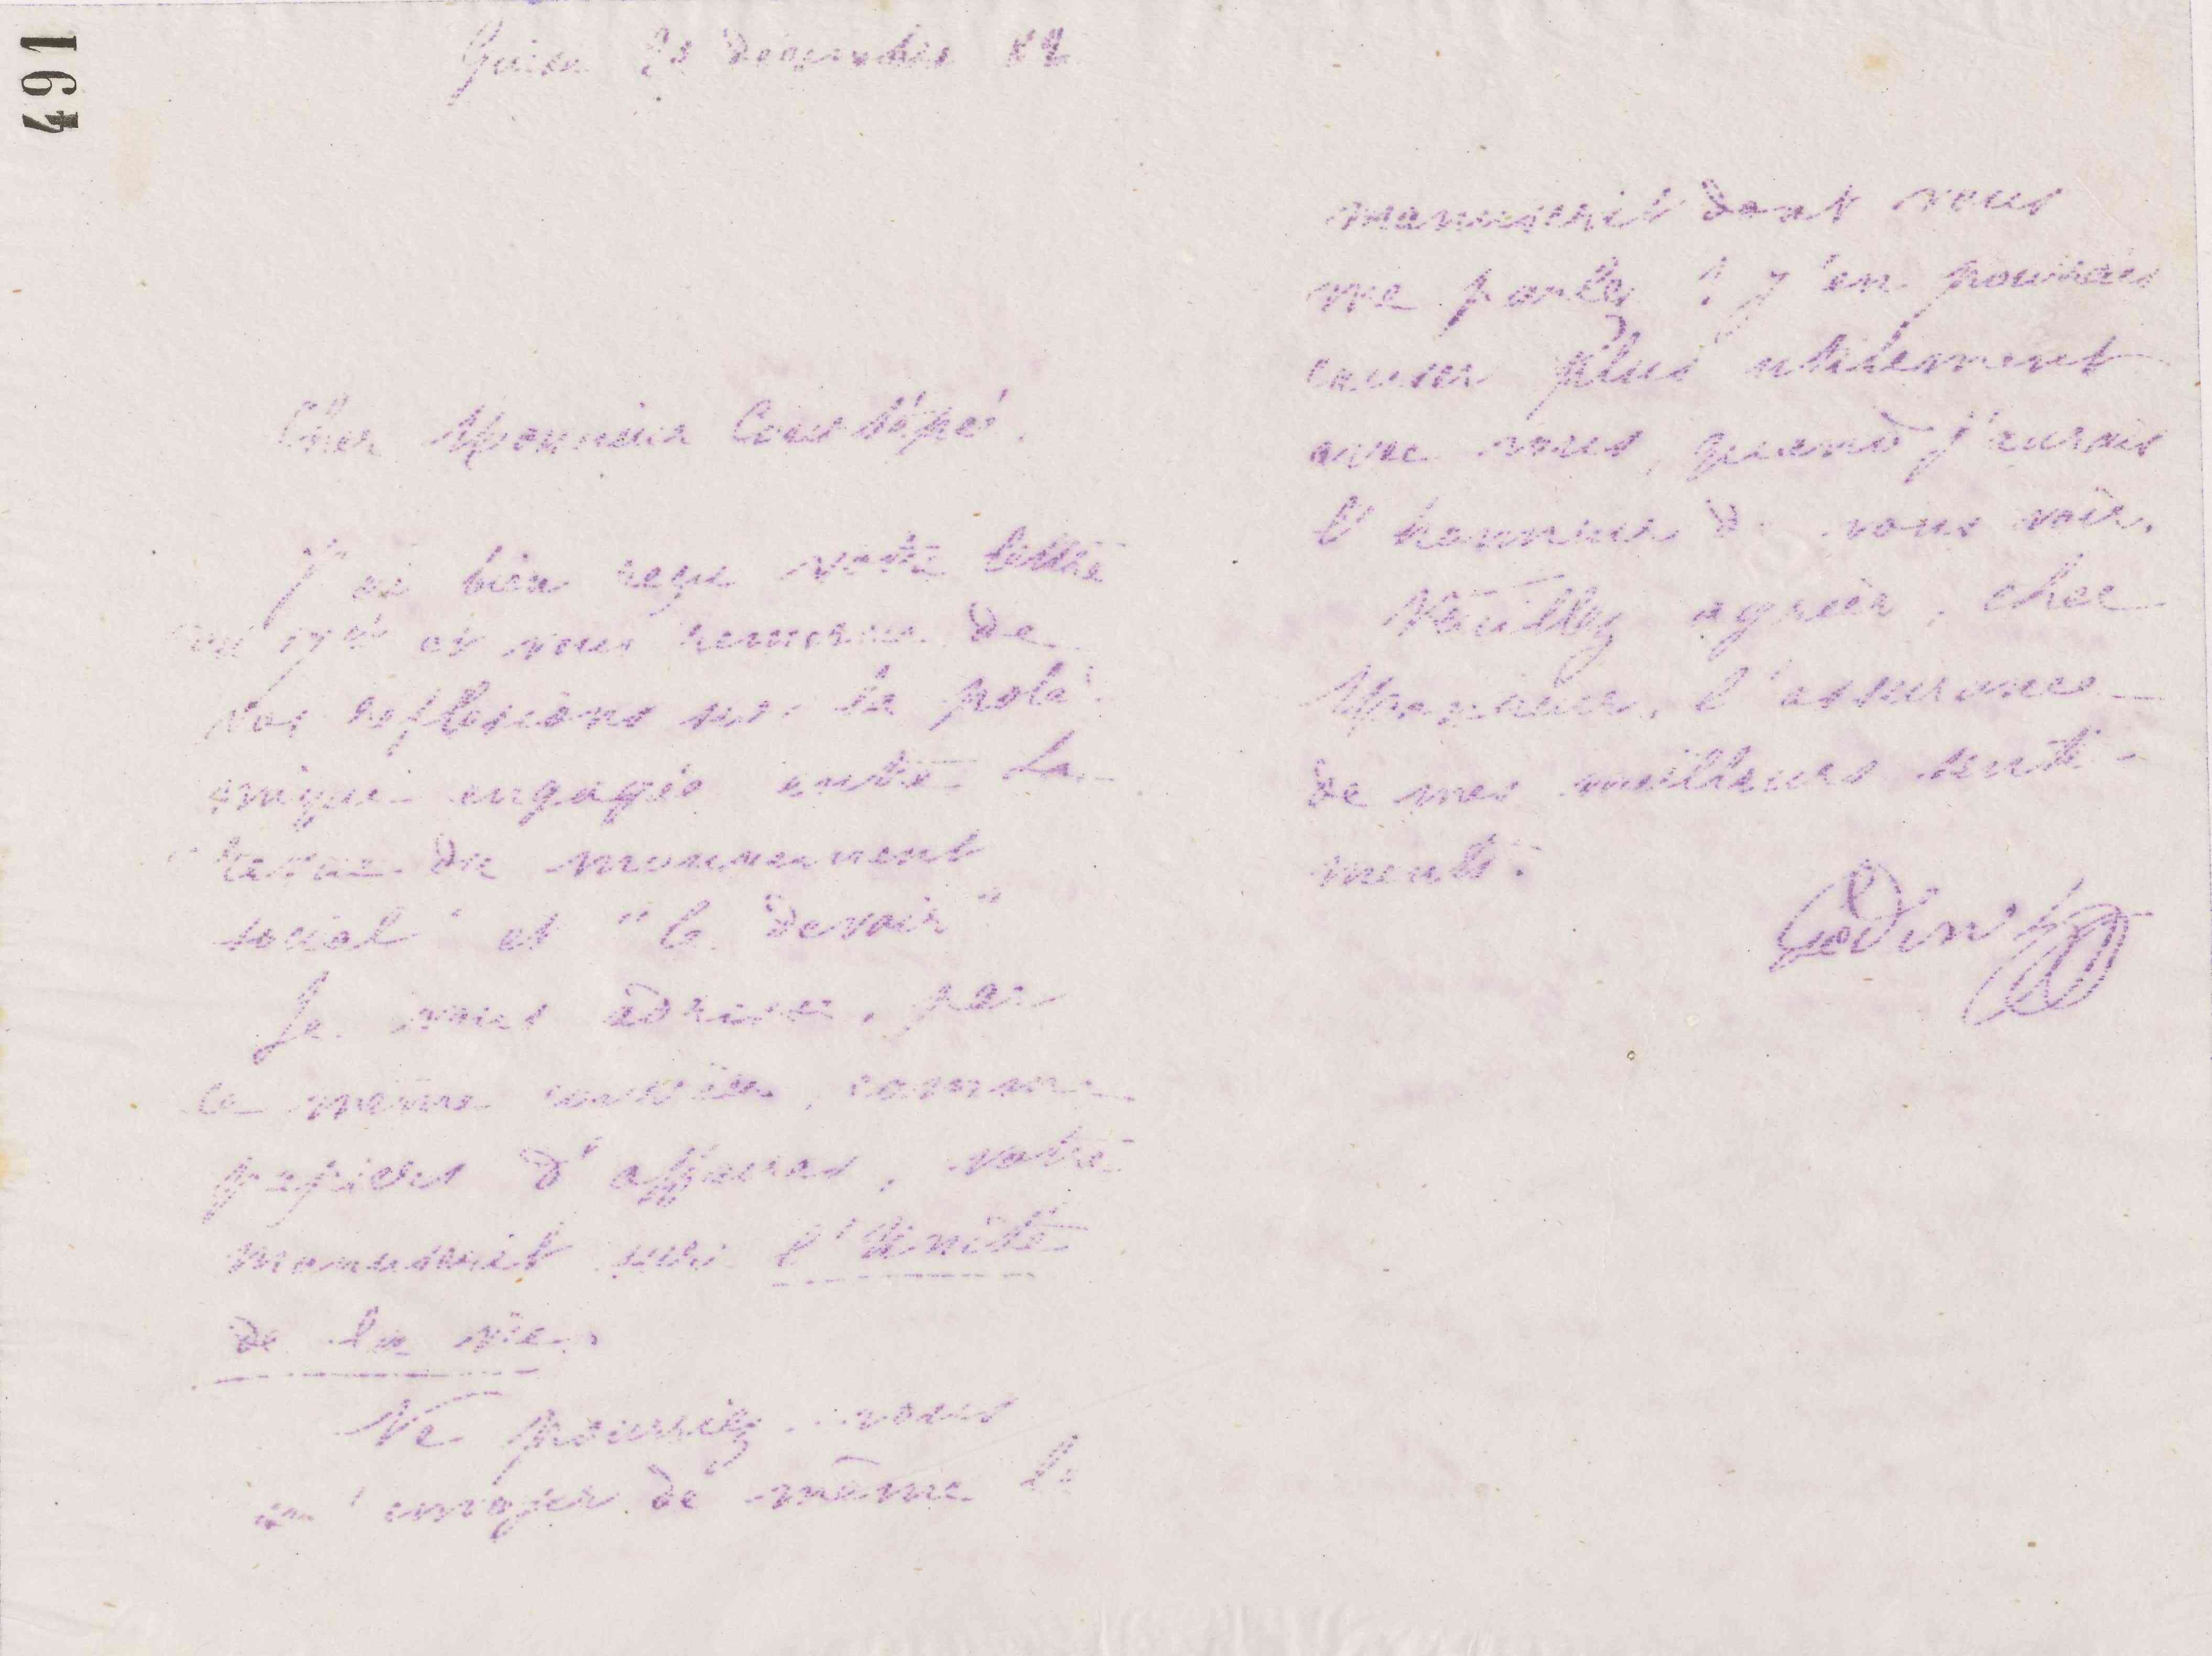 491
Guise décembre 82
Cher Monsieur Courtépée,
J'ai bien reçu votre lettre
et vous remercie de
vos réflexions sur la polé-
mique engagée entre La
du mouvement
social" et "le Devoir"
Je vous adresse, par
ce même courrier, comme
papiers d'affaires, votre
manuscrit sur l'Unité
de la vie.
Ne pourriez-vous
m'envoyer de même le
manuscrit dont vous
me parlez ? J'en pourrais
causer plus utilement
avec vous, quand j'aurais
l'honneur de vous voir.
Veuillez agréer, cher
Monsieur, l'assurance
de mes meilleurs senti-
ments.
Godin